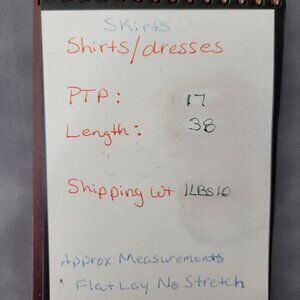 Skirts
Shirts/dresses
PTP: 17
Length: 38
Shipping wt 1LBS10
Approx Measurements
Flat Lay No Stretch